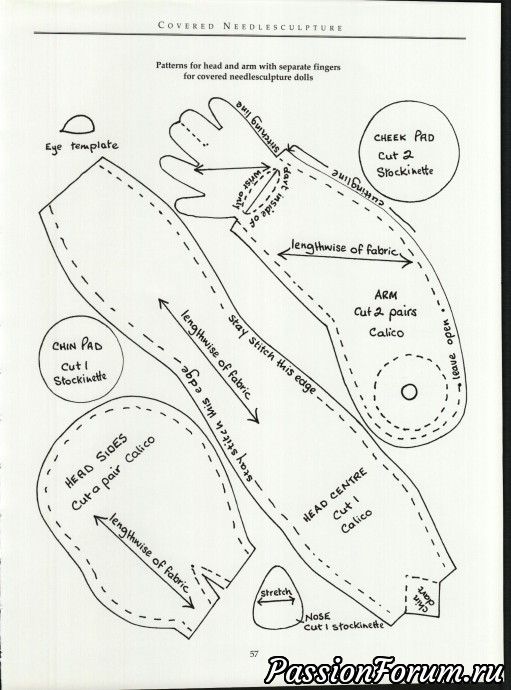 COVERED NEEDLESCULPTURE
Patterns for head and arm with separate fingers
for covered needlesculpture dolls
Eye template
stitching line
cutting line
CHEEK PAD
Cut 2
Stockinette
dart inside of
wrist only
lengthwise of fabric
ARM
Cut 2 pairs
Calico
leave open
CHIN PAD
Cut 1
Stockinette
lengthwise of fabric
stay stitch this edge
stay stitch this edge
HEAD SIDES
Cut a pair Calico
lengthwise of fabric
HEAD CENTRE
Cut 1
Calico
chin
dart
stretch
NOSE
Cut 1 stockinette
57
PassionForum.ru